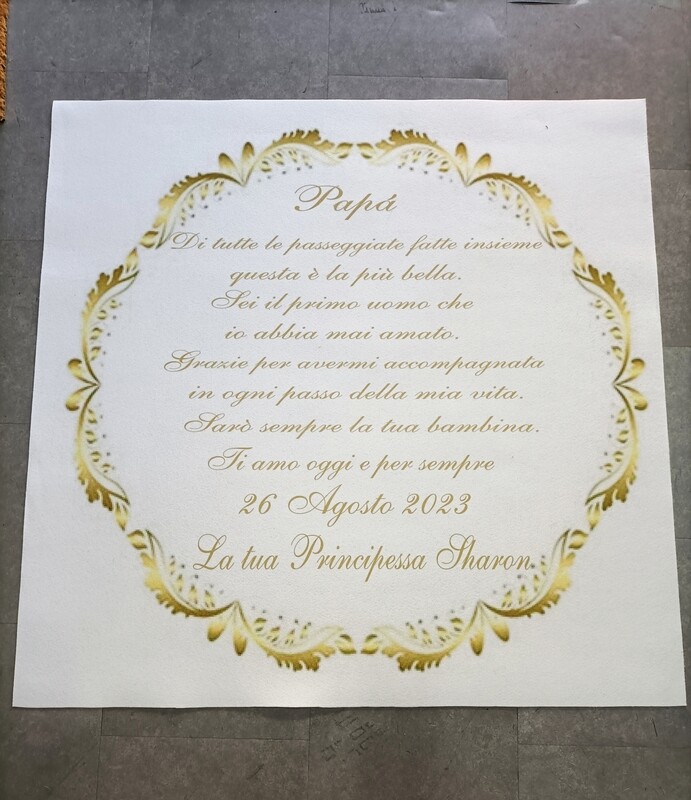 Papá
Di tutte le passeggiate fatte insieme
questa è la più bella.
Sei il primo uomo che
io abbia mai amato.
Grazie per avermi accompagnata
in ogni passo della mia vita.
Sarò sempre la tua bambina.
Ti amo oggi e per sempre
26 Agosto 2023
La tua Principessa Sharon